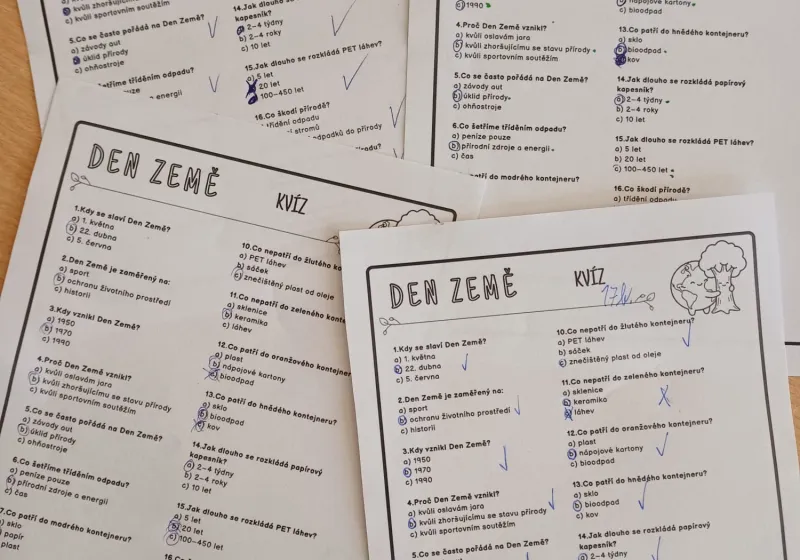 kvůli zhoršujícímu se
c) kvůli sportovním soutěžím
5.Co se často pořádá na Den Země?
a) závody aut
b) úklid přírody
c) ohňostroje
šetříme tříděním odpadu?
energii
14.Jak dlouho se rozkládá papírový
kapesník?
a) 2-4 týdny
b) 2-4 roky
c) 10 let
15.Jak dlouho se rozkládá PET láhev?
a) 5 let
b) 20 let
c) 100-450 let
16.Co škodí přírodě?
třídění odpadu
stromů
odpadků do přírody
c) 1990
4.Proč Den Země vznikl?
a) kvůli oslavám jara
b) kvůli zhoršujícímu se stavu přírody
c) kvůli sportovním soutěžím
5.Co se často pořádá na Den Země?
a) závody aut
b) úklid přírody
c) ohňostroje
6.Co šetříme tříděním odpadu?
a) peníze pouze
b) přírodní zdroje a energii
c) čas
patří do modrého kontejneru?
nápojové kartony
c) bioodpad
13.Co patří do hnědého kontejneru?
a) sklo
b) bioodpad
c) kov
14.Jak dlouho se rozkládá papírový
kapesník?
a) 2-4 týdny
b) 2-4 roky
c) 10 let
15.Jak dlouho se rozkládá PET láhev?
a) 5 let
b) 20 let
c) 100-450 let
16.Co škodí přírodě?
a) třídění odpadu
DEN ZEMĚ
KVÍZ
1.Kdy se slaví Den Země?
a) 1. května
b) 22. dubna
c) 5. června
2.Den Země je zaměřený na:
a) sport
b) ochranu životního prostředí
c) historii
3.Kdy vznikl Den Země?
a) 1950
b) 1970
c) 1990
4.Proč Den Země vznikl?
a) kvůli oslavám jara
b) kvůli zhoršujícímu se stavu přírody
c) kvůli sportovním soutěžím
5.Co se často pořádá na Den Země?
a) závody aut
b) úklid přírody
c) ohňostroje
6.Co šetříme tříděním odpadu?
a) peníze pouze
b) přírodní zdroje a energii
c) čas
7.Co patří do modrého kontejneru?
a) sklo
papír
plast
10.Co nepatří do žlutého
a) PET láhev
b) sáček
c) znečištěný plast od oleje
11.Co nepatří do zeleného
a) sklenice
b) keramika
c) láhev
12.Co patří do oranžového kontejneru?
a) plast
b) nápojové kartony
c) bioodpad
13.Co patří do hnědého kontejneru?
a) sklo
b) bioodpad
c) kov
14.Jak dlouho se rozkládá papírový
kapesník?
a) 2-4 týdny
b) 2-4 roky
c) 10 let
15.Jak dlouho se rozkládá PET láhev?
a) 5 let
b) 20 let
c) 100-450 let
16.Co
DEN ZEMĚ
KVÍZ
1.Kdy se slaví Den Země?
a) 1. května
b) 22. dubna
c) 5. června
2.Den Země je zaměřený na:
a) sport
b) ochranu životního prostředí
c) historii
3.Kdy vznikl Den Země?
a) 1950
b) 1970
c) 1990
4.Proč Den Země vznikl?
a) kvůli oslavám jara
b) kvůli zhoršujícímu se stavu přírody
c) kvůli sportovním soutěžím
5.Co se často pořádá na Den Země?
10.Co nepatří do žlutého kontejneru?
a) PET láhev
b) sáček
c) znečištěný plast od oleje
11.Co nepatří do zeleného kontejneru?
a) sklenice
b) keramika
láhev
12.Co patří do oranžového kontejneru?
a) plast
b) nápojové kartony
c) bioodpad
13.Co patří do hnědého kontejneru?
a) sklo
b) bioodpad
c) kov
14.Jak dlouho se rozkládá papírový
kapesník?
a) 2-4 týdny